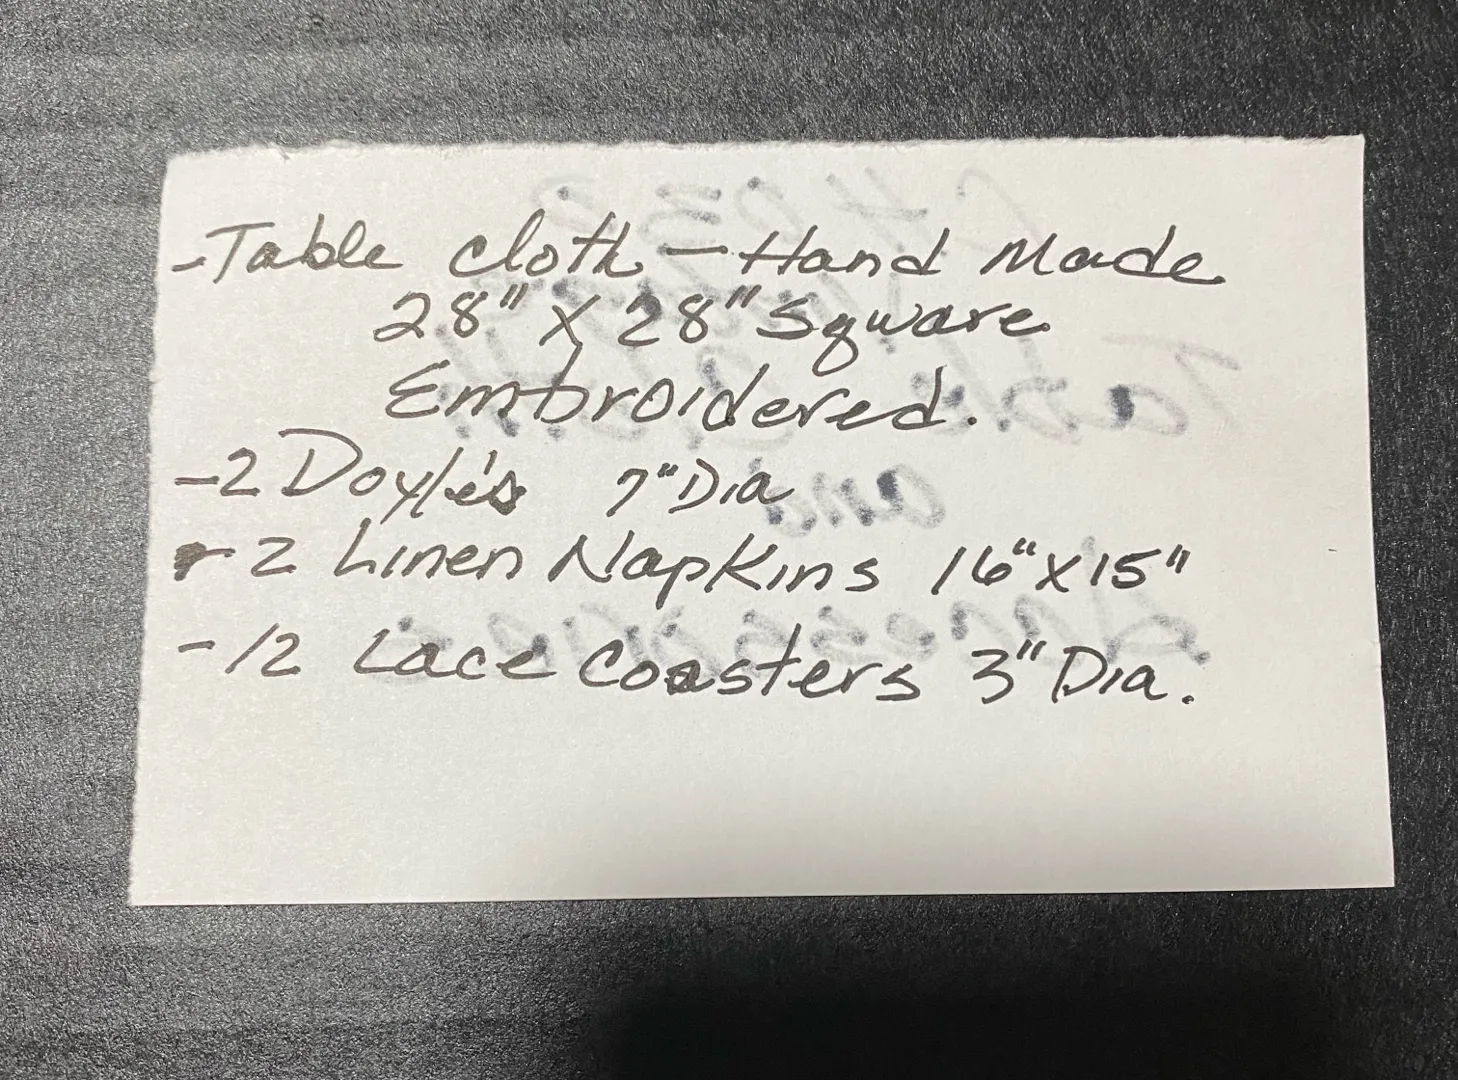 - Table cloth - Hand Made
28" X 28" Square
Embroidered.
- 2 Doyle's 7" Dia
- 2 Linen Napkins 16" X 15"
- 12 Lace Coasters 3" Dia.